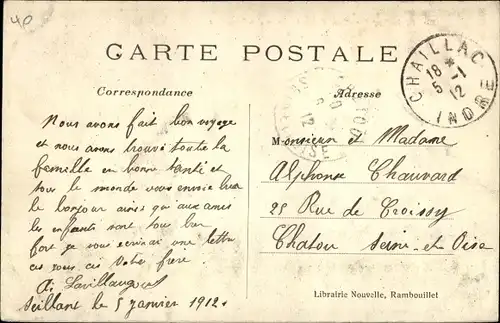 40
CARTE POSTALE
Correspondance
Adresse
CHAILLAC
18 * 5 -1 12
INDRE
Nous avons fait bon voyage
et nous avons trouvé toute la
famille en bonne santé et
tous le monde vous envoie leur
le bonjour ainsi qu'aux amis
les enfants sont tous bien
fort je vous ecrirai une lettre
ces jours ci Votre frère
le 5 janvier 1912
Monsieur et Madame
Alphonse Chauvard
25 Rue de Croissy
Chatou Seine et Oise
Librairie Nouvelle, Rambouillet